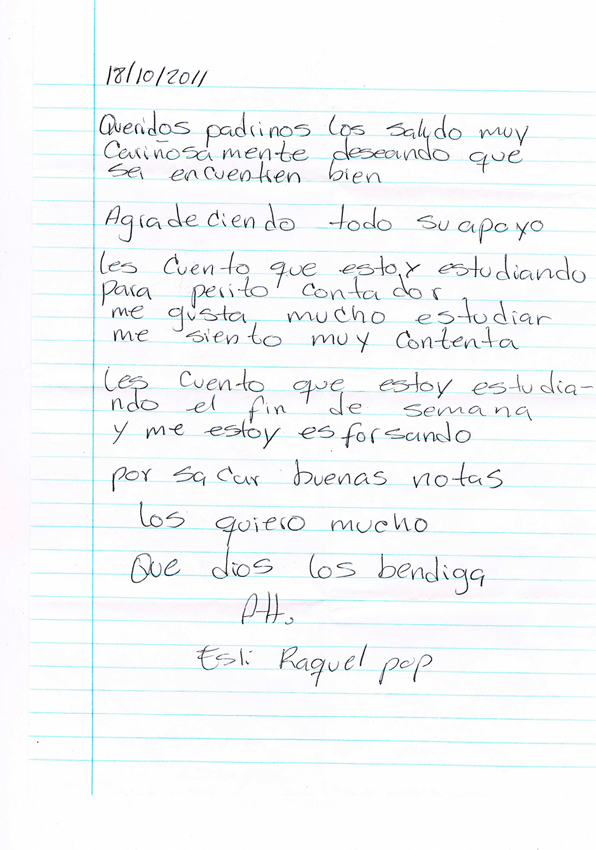 18/10/2011
Queridos padrinos los saludo muy
Cariñosamente deseando que
se encuentren bien
Agradeciendo todo su apoyo
les cuento que estoy estudiando
para perito contador
me gusta mucho estudiar
me siento muy contenta
les cuento que estoy estudia-
ndo el fin de semana
y me estoy esforsando
por sacar buenas notas
los quiero mucho
Que dios los bendiga
Att,
Esli Raquel pop